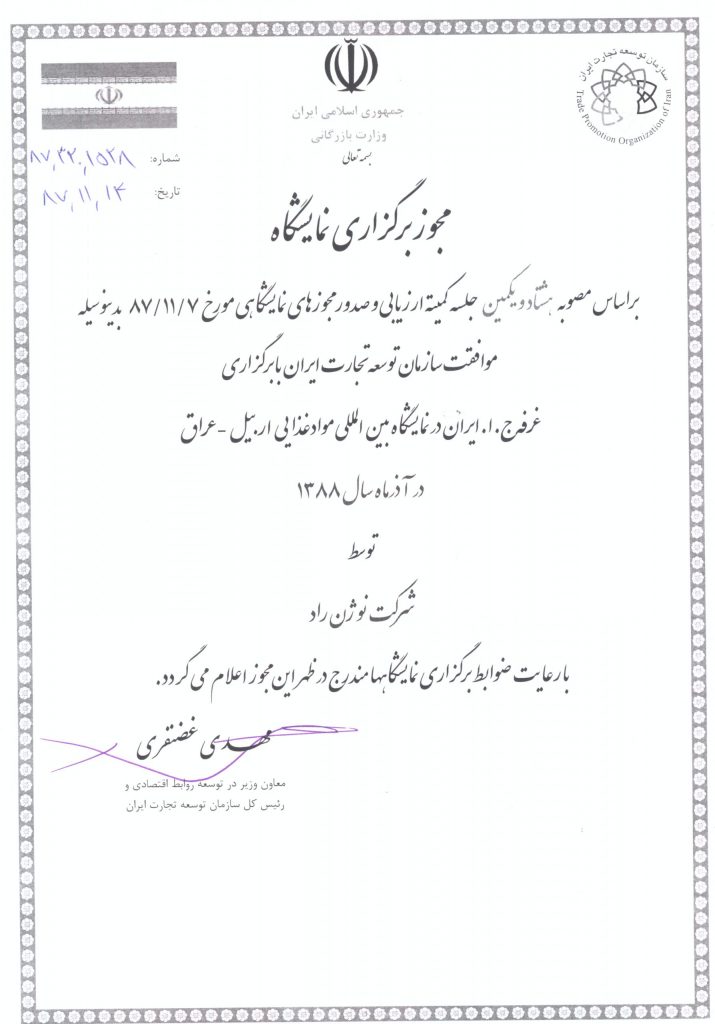 سازمان توسعه تجارت ایران
Trade Promotion Organization of Iran
جمهوری اسلامی ایران
وزارت بازرگانی
بسمه تعالی
شماره: ۸۷٫۳۲٫۱۵۲۸
تاریخ: ۸۷٫۱۱٫۱۴
مجوز برگزاری نمایشگاه
براساس مصوبه هشتاد و یکمین جلسه کمیته ارزیابی و صدور مجوزهای نمایشگاهی مورخ ۸۷/۱۱/۷ بدینوسیله
موافقت سازمان توسعه تجارت ایران با برگزاری
غرفه ج.ا.ایران در نمایشگاه بین المللی مواد غذایی اربیل - عراق
در آذر ماه سال ۱۳۸۸
توسط
شرکت نوژن راد
با رعایت ضوابط برگزاری نمایشگاهها مندرج در ظهر این مجوز اعلام می گردد.
مهدی غضنفری
معاون وزیر در توسعه روابط اقتصادی و
رئیس کل سازمان توسعه تجارت ایران